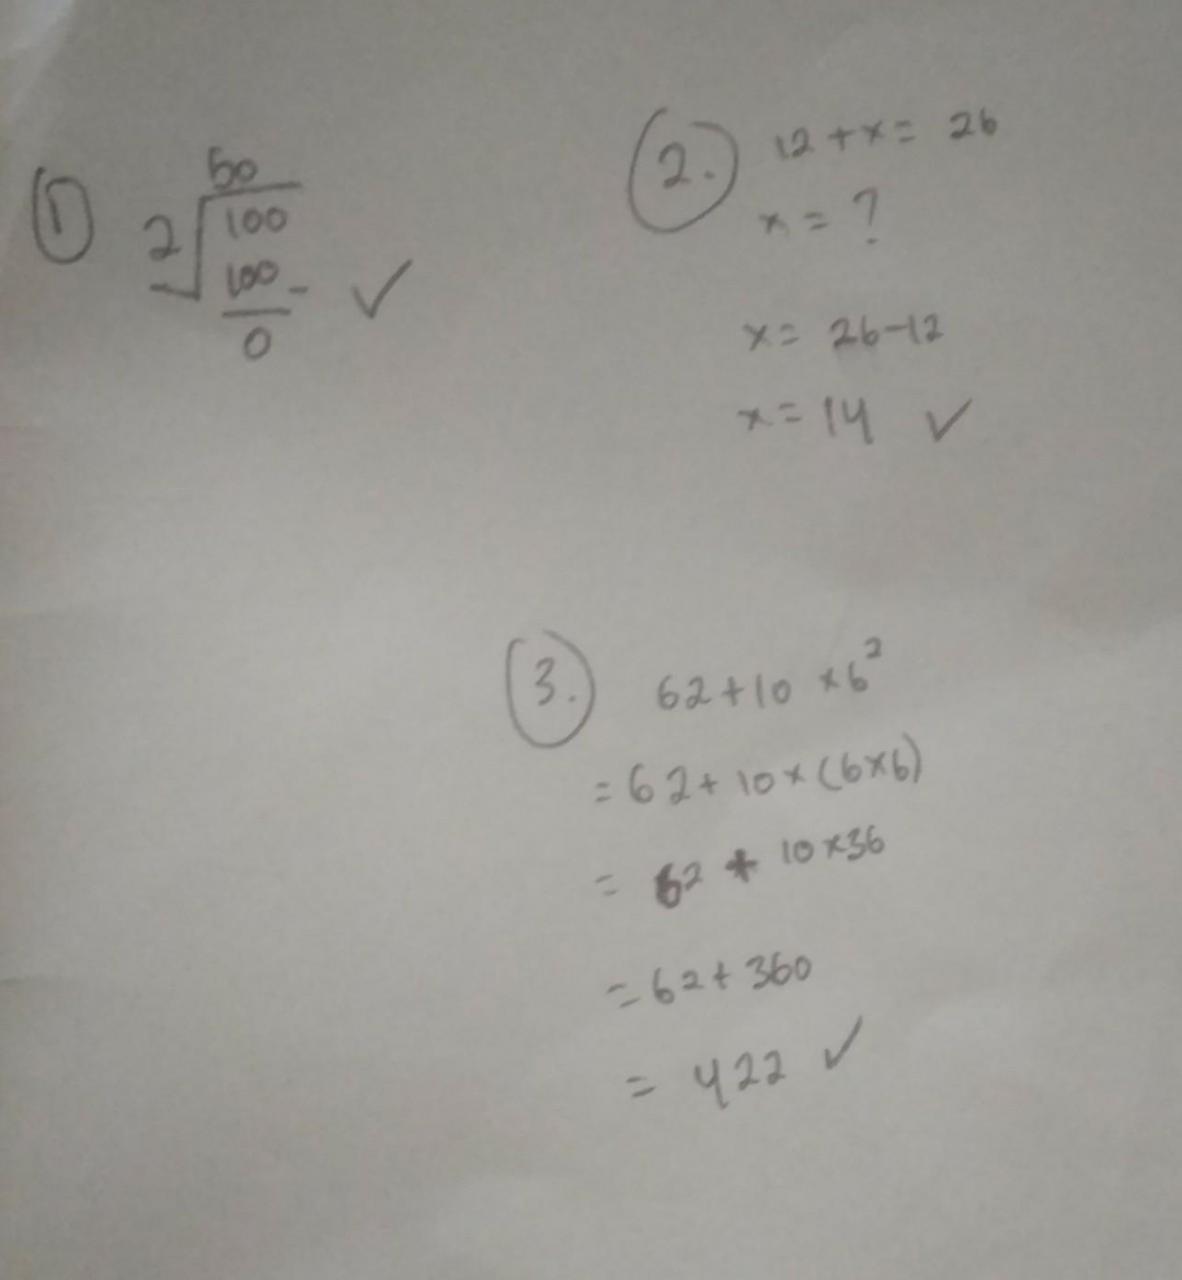 ①
50
2 √100
100 -
0 ✓
②.
12 + x = 26
x = ?
x = 26-12
x = 14 ✓
③.
62 + 10 × 6²
= 62 + 10 × (6×6)
= 62 + 10 × 36
= 62 + 360
= 422 ✓